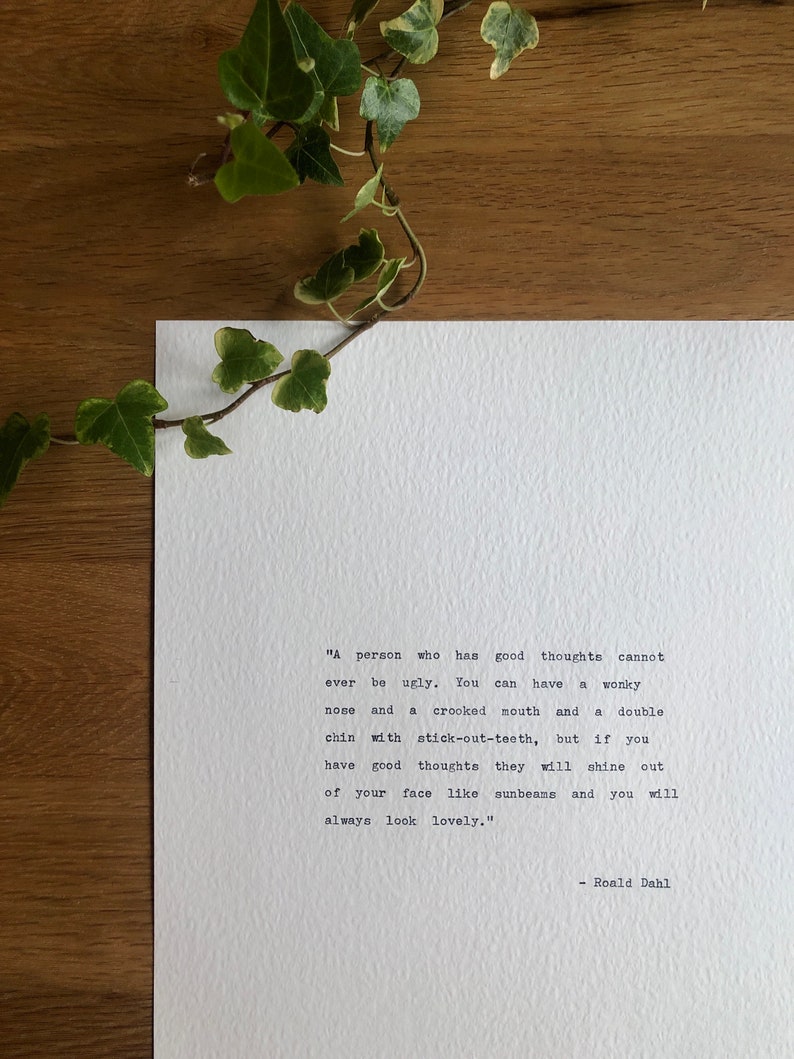 "A person who has good thoughts cannot
ever be ugly. You can have a wonky
nose and a crooked mouth and a double
chin with stick-out-teeth, but if you
have good thoughts they will shine out
of your face like sunbeams and you will
always look lovely."
- Roald Dahl